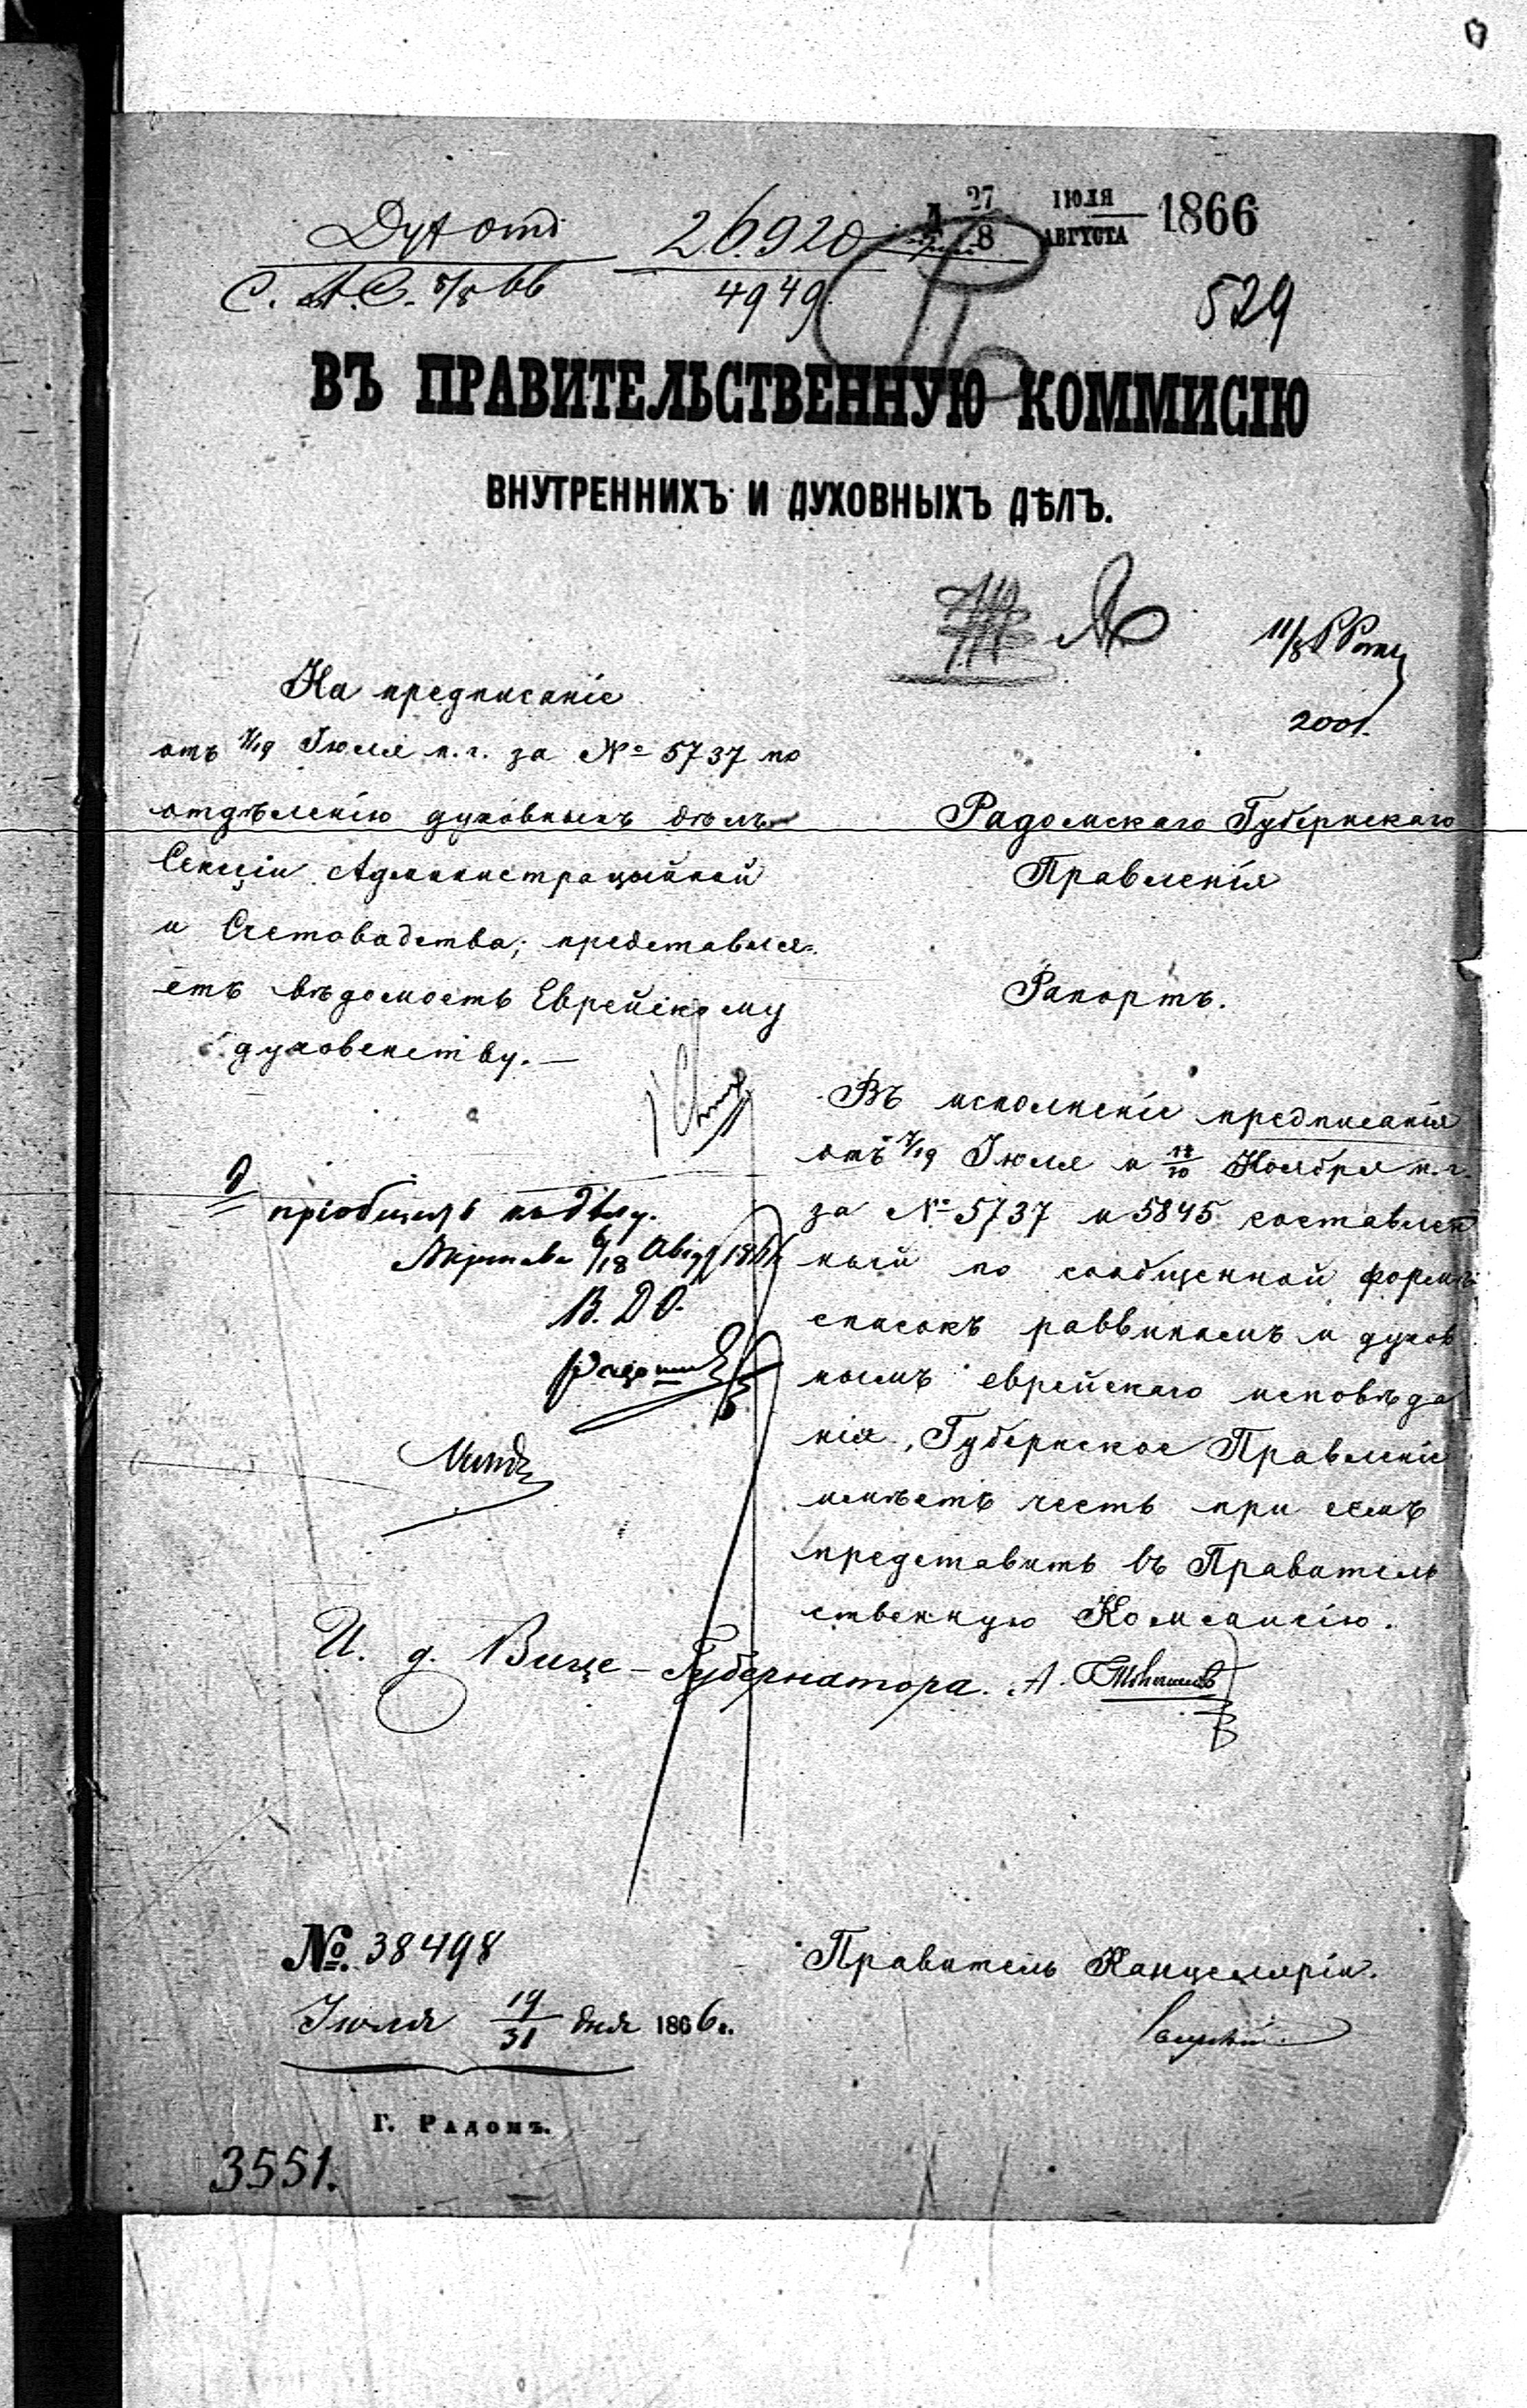 Дух отд
26920
27 ІЮЛЯ
8 АВГУСТА
1866
С. А. С. 8/8 66
4949
529
ВЪ ПРАВИТЕЛЬСТВЕННУЮ КОММИСІЮ
ВНУТРЕННИХЪ И ДУХОВНЫХЪ ДѢЛЪ.
11/8
2001.
На предписаніе
отъ 7/19 Іюля н.г. за № 5737 по
отдѣленію духовныхъ дѣлъ
Секціи Администраційной
и Счетоводства; представля-
етъ вѣдомость Еврейскому
духовенству.—
Радомскаго Губернскаго
Правленія
Рапортъ.
Въ исполненіе предписанія
отъ 7/19 Іюля и 18/30 Ноября п.г.
за № 5737 и 5845 составлен
ный по сообщенной формѣ
списокъ раввинамъ и духов
нымъ еврейскаго исповѣда
нія, Губернское Правленіе
имѣетъ честь при семъ
представить въ Правитель
ственную Коммисію.
пріобщить къ дѣлу.
Варшава 6/18 Авгу 1866
В. Д. О.
И. д. Вице-Губернатора. А.
№. 38498
Іюля 19/31 дня 1866 г.
Г. РАДОМЪ.
3551.
Правитель Канцеляріи.